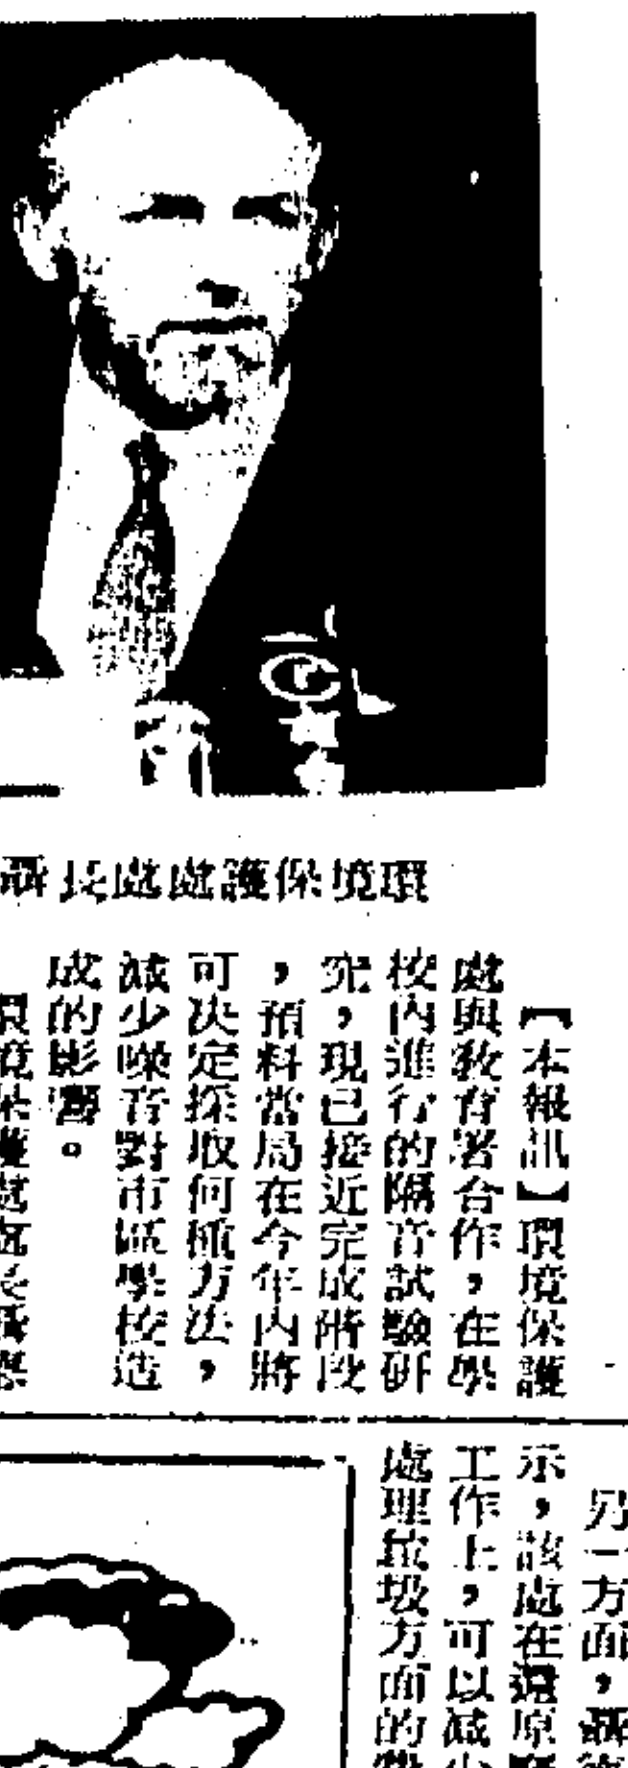 環境保護處處長聶
【本報訊】環境保護
處與教育署合作，在學
校內進行的隔音試驗研
究，現已接近完成階段
，預料當局在今年內將
可决定採取何種方法，
減少噪音對市區學校造
成的影響。
環境保護處處長聶
另一方面，聶
示，該處在還原
工作上，可以減少
處理垃圾方面的